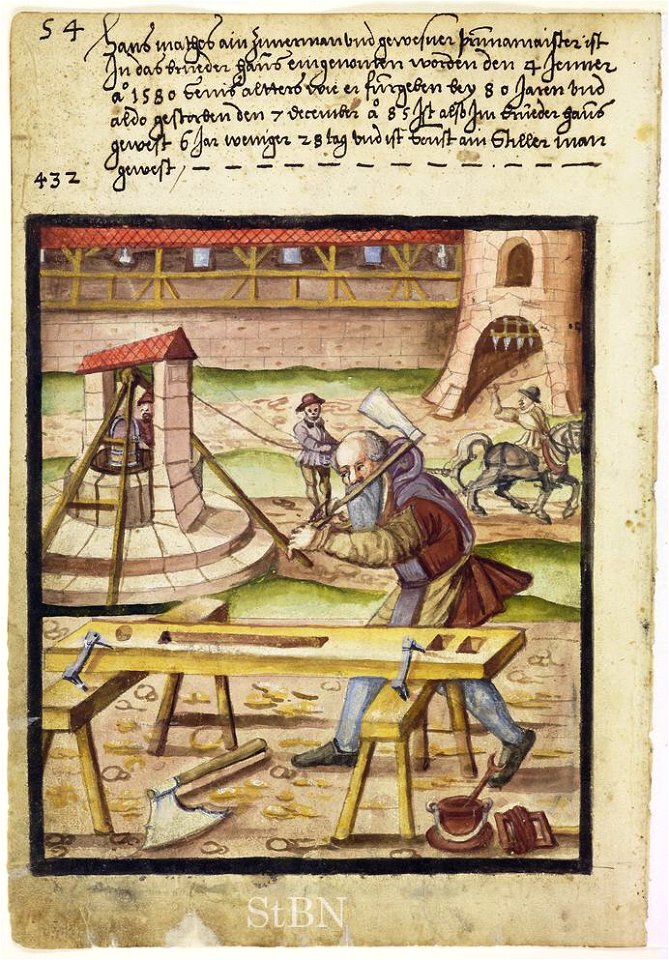 54
Hans mathes ain Zimerman vnd gewesner Prunamaister ist
In das brueder hauß eingenomen worden den 4 Jenner
a° 1580 seins altters wie er fürgeben bey 80 Jaren vnd
aldo gestorben den 7 december a° 85 Ist also Im brueder hauß
gewest 6 Jar weniger 28 tag vnd ist sonst ain Stiller man
432
gewest
StBN